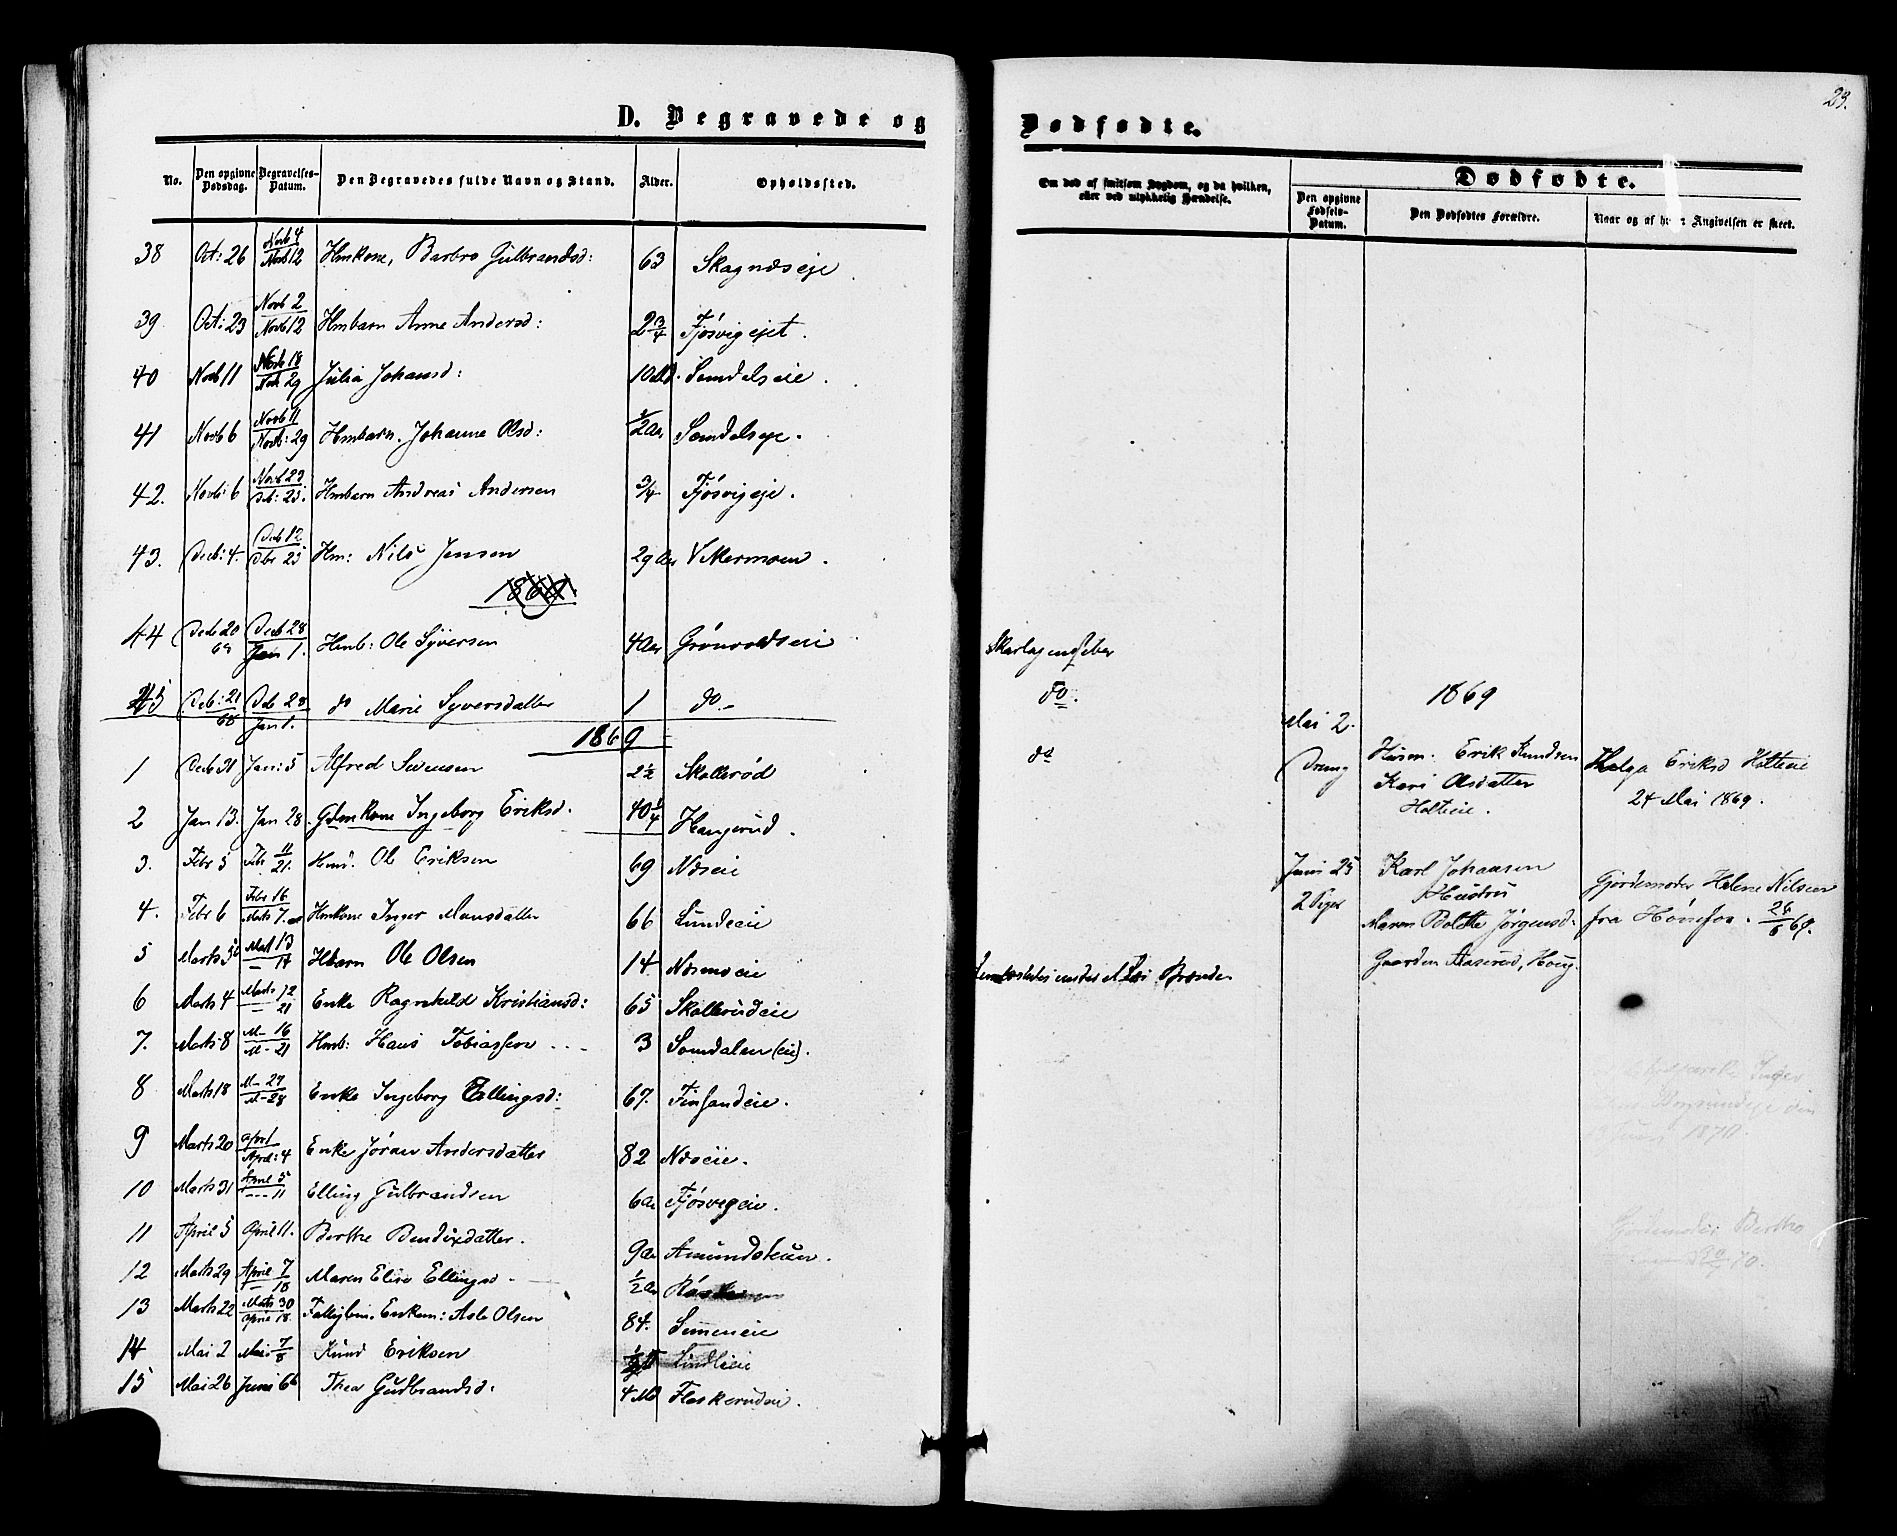 D. Begravede og
No. Den opgivne Dødsdag. Begravelses-Datum. Den Begravedes fulde Navn og Stand. Alder. Opholdssted.
38 Oct: 26 Novb 4 Novb 12 Hmkone, Barbro Gulbrandsd: 63 Skagnæseje
39 Oct: 23 Novb 2 Novb 12 Hmbarn Anne Andersd: 2 3/4 Fjösvigejet.
40 Novb 11 Novb 18 Novb 29 Julia Johansd: 10 Md. Semdelseie.
41 Novb 6 Novb 11 Novb: 29 Hmbarn. Johanne Olsd: 1/2 Aar Semdelseje.
42. Novb: 6 Novb 23 Db: 25. Hmbarn Andreas Andersen 3/4 Fjösvigeje.
43. Decb: 4. Decb 12 Dbr 25 Hm: Nils Jensen 29 Aar Vikermoen.
44 Decb 20 Decb 28 Jan 1. Hmb: Ole Syversen 4 Aar Grönvoldseie
45 Decb: 21 68 Deb 28 Jan 1. do Marie Syversdatter 1 do.-
1869
1 Decb 31 Jan: 5 Alfred Svensen 2 1/2 Skollerød
2 Jan 13. Jan 28. Gdmkone Ingeborg Eriksd. 40 1/4 Haugerud.
3. Febr 5 Febr 11 21. Ole Eriksen 69 Næseie
4. Febr 6 Febr 16 Marts 7. Hmkone Inger Monsdatter 66 Lundeeie
5 Marts Mart 13 — 14 Hbarn Ole Olsen 14. Næsmoeie
6 Marts 4 Marts 12 — 21 Enke Ragnehild Kristiansd: 65 Skollerudeie
7. Marts 8 M- 16 M- 21 Hmb: Hans Tobiassen 3 Somdalen (eie).
8 Marts 18 M- 27 M- 28 Enke Ingeborg Ellingsd: 67. Finsandeie.
9 Marts 20 April April: 4 Enke Jöran Andersdatter 82 Næseie.
10 Marts 31 April 5 --- 11 Elling Gulbrandsen 6 Aar Fjösvigeie.
11 April 5 April 11. Berthe Bendixdatter. 9 Aar
12 Marts 29 April 7 — 18 Maren Elise Ellingsd 1/2 Aar
13 Marts 22 Marts 30 April 18. Asle Olsen 84. Semmeneie
14 Mai 2 Mai 7/8 Knud Eriksen Lindlieie
15 Mai 26 Juni 6 Thea Gudbrandsd: 4 Md Flaskerudeie.
29.
Dødfødte.
Om død af smitsom Sygdom, og da hvilken, eller ved ulykkelig Hændelse.
Dødfødte.
Den opgivne Fødsels-Datum. Den Dødfødtes Forældre. Naar og af hvem Angivelsen er skeet.
Skarlagensfeber
do.
do
1869
Mai 2.
Dreng
Husm. Erik Knudsen
Kari Olsdatter
Holteeie.
Helga Eriksd Holteeie
24 Mai 1869.
Juni 25
2 Piger
Karl Johansen
Hustru
Maren Bolette Jørgensd:
Gaarden Aaserud, Houg.
Gjordemoder Helene Nilsen
fra Hönefos. 26/6 69.
Brønde
Inger
1870.
Gjordemoder Berthe
70.